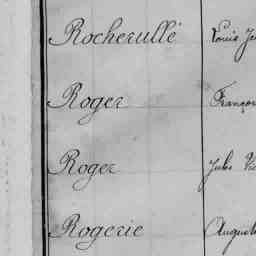 Rocherullé Louis Je
Roger Françoi
Roger Jules Vic
Rogerie Auguste